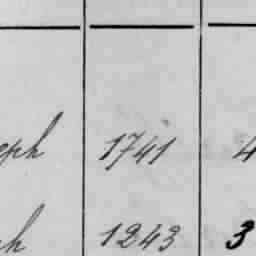 eph 1741 4
ph 1243 3